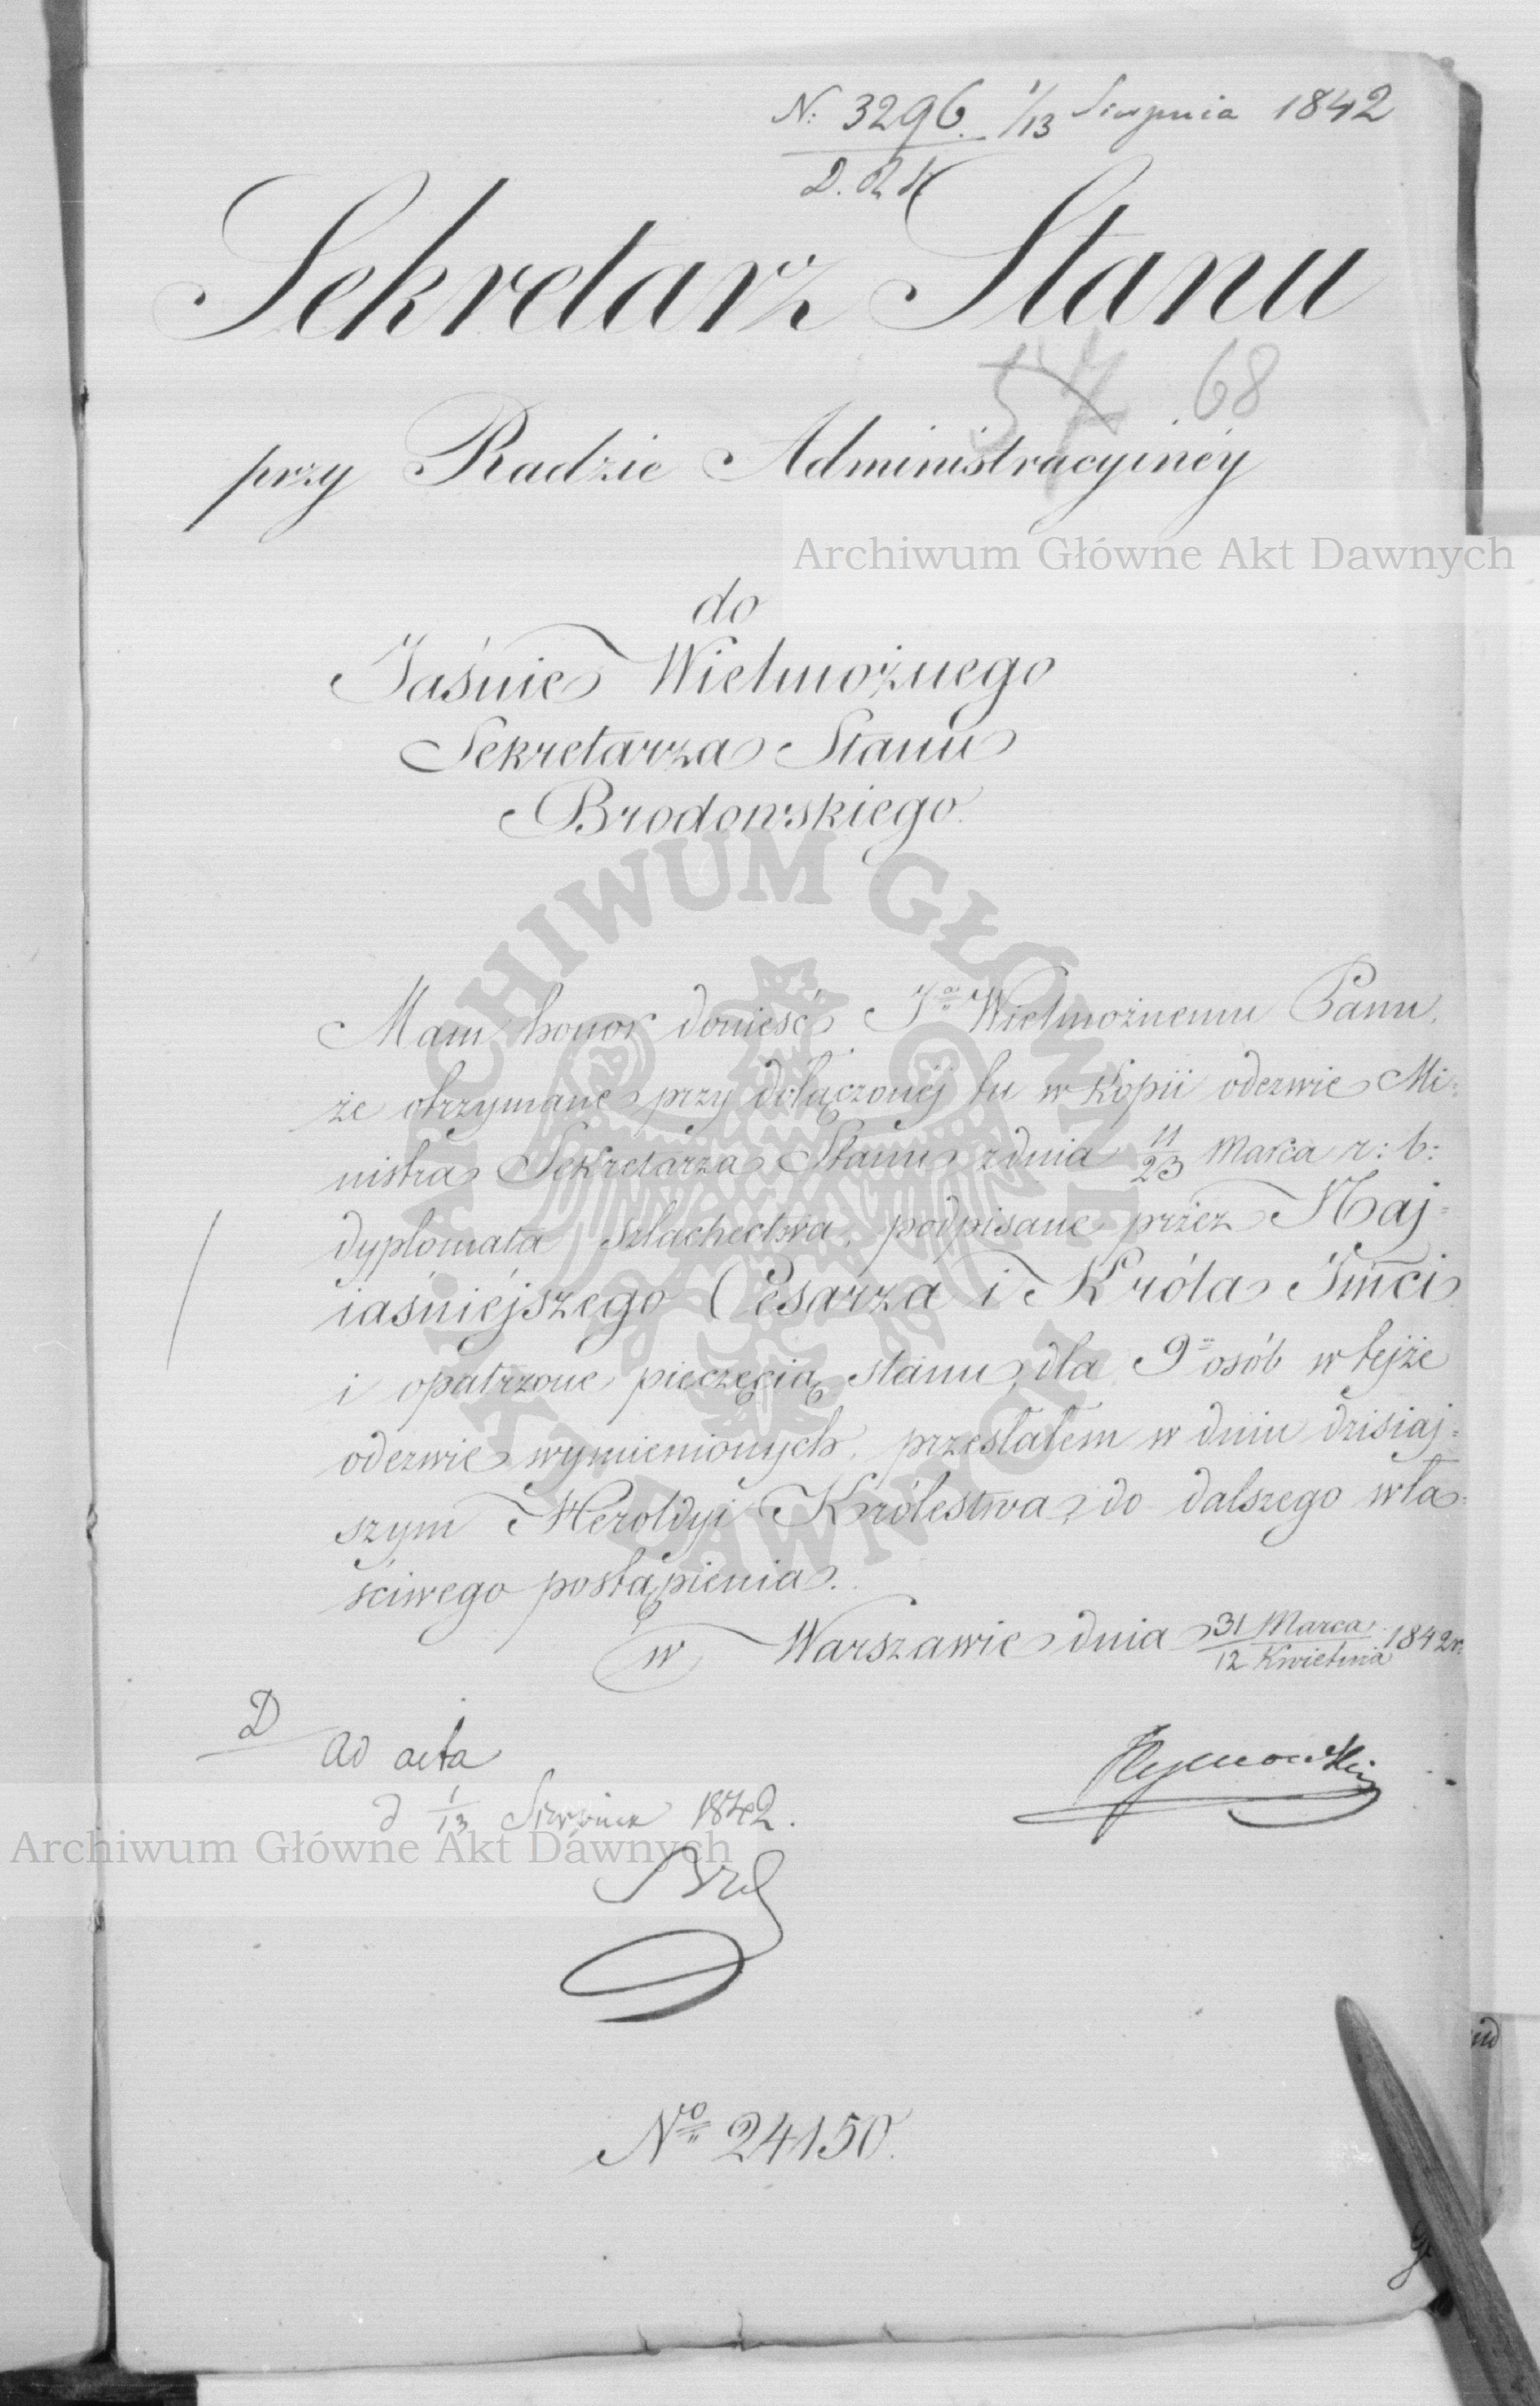 N: 3296. 1/13 Sierpnia 1842
D. R K
Sekretarz Stanu
57 68
przy Radzie Administracyinéy
Archiwum Główne Akt Dawnych
do
Jaśnie Wielmożnego
Sekretarza Stanu
Brodowskiego.
ARCHIWUM GŁÓWNE AKT DAWNYCH
Mam honor donieść Jaś Wielmożnemu Panu,
że otrzymane przy dołączonéj tu w kopii odezwie Mi=
nistra Sekretarza Stanu z dnia 11/23 Marca r: b:
dyplomata szlachectwa, podpisane przez Naj=
iaśniéjszego Cesarza i Króla Jmci
i opatrzone pieczęcią stanu, dla 9" osób w tejże
odezwie wymienionych, przesłałem w dniu dzisiaj=
szym Heroldyi Królestwa, do dalszego wła=
ściwego postąpienia.
w Warszawie dnia 31 Marca/12 Kwietnia 1842 r:
D
ad acta
Hymowski
d 1/13 Sierpnia 1842.
Archiwum Główne Akt Dawnych
No 24150.